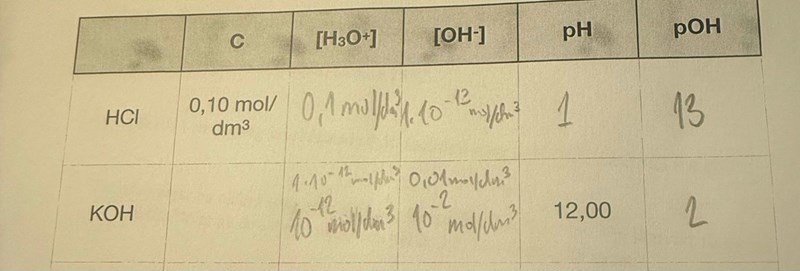 C [H₃O⁺] [OH-] pH pOH
HCl 0,10 mol/ dm³ 0,1 mol/dm³ 1·10⁻¹³ mol/dm³ 1 13
1·10⁻¹² mol/dm³ 0,01 mol/dm³
KOH 10⁻¹² mol/dm³ 10⁻² mol/dm³ 12,00 2